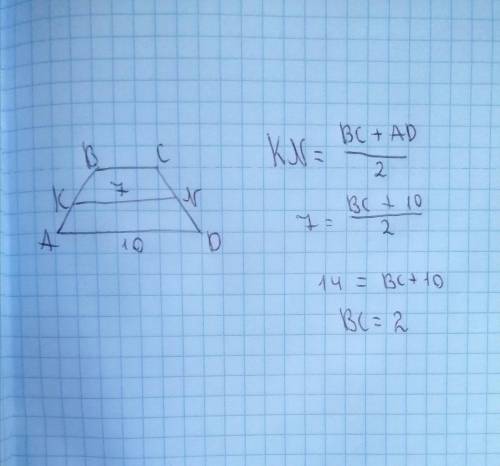 B C
K 7 N
A 10 D
KN = BC + AD / 2
7 = BC + 10 / 2
14 = BC + 10
BC = 2